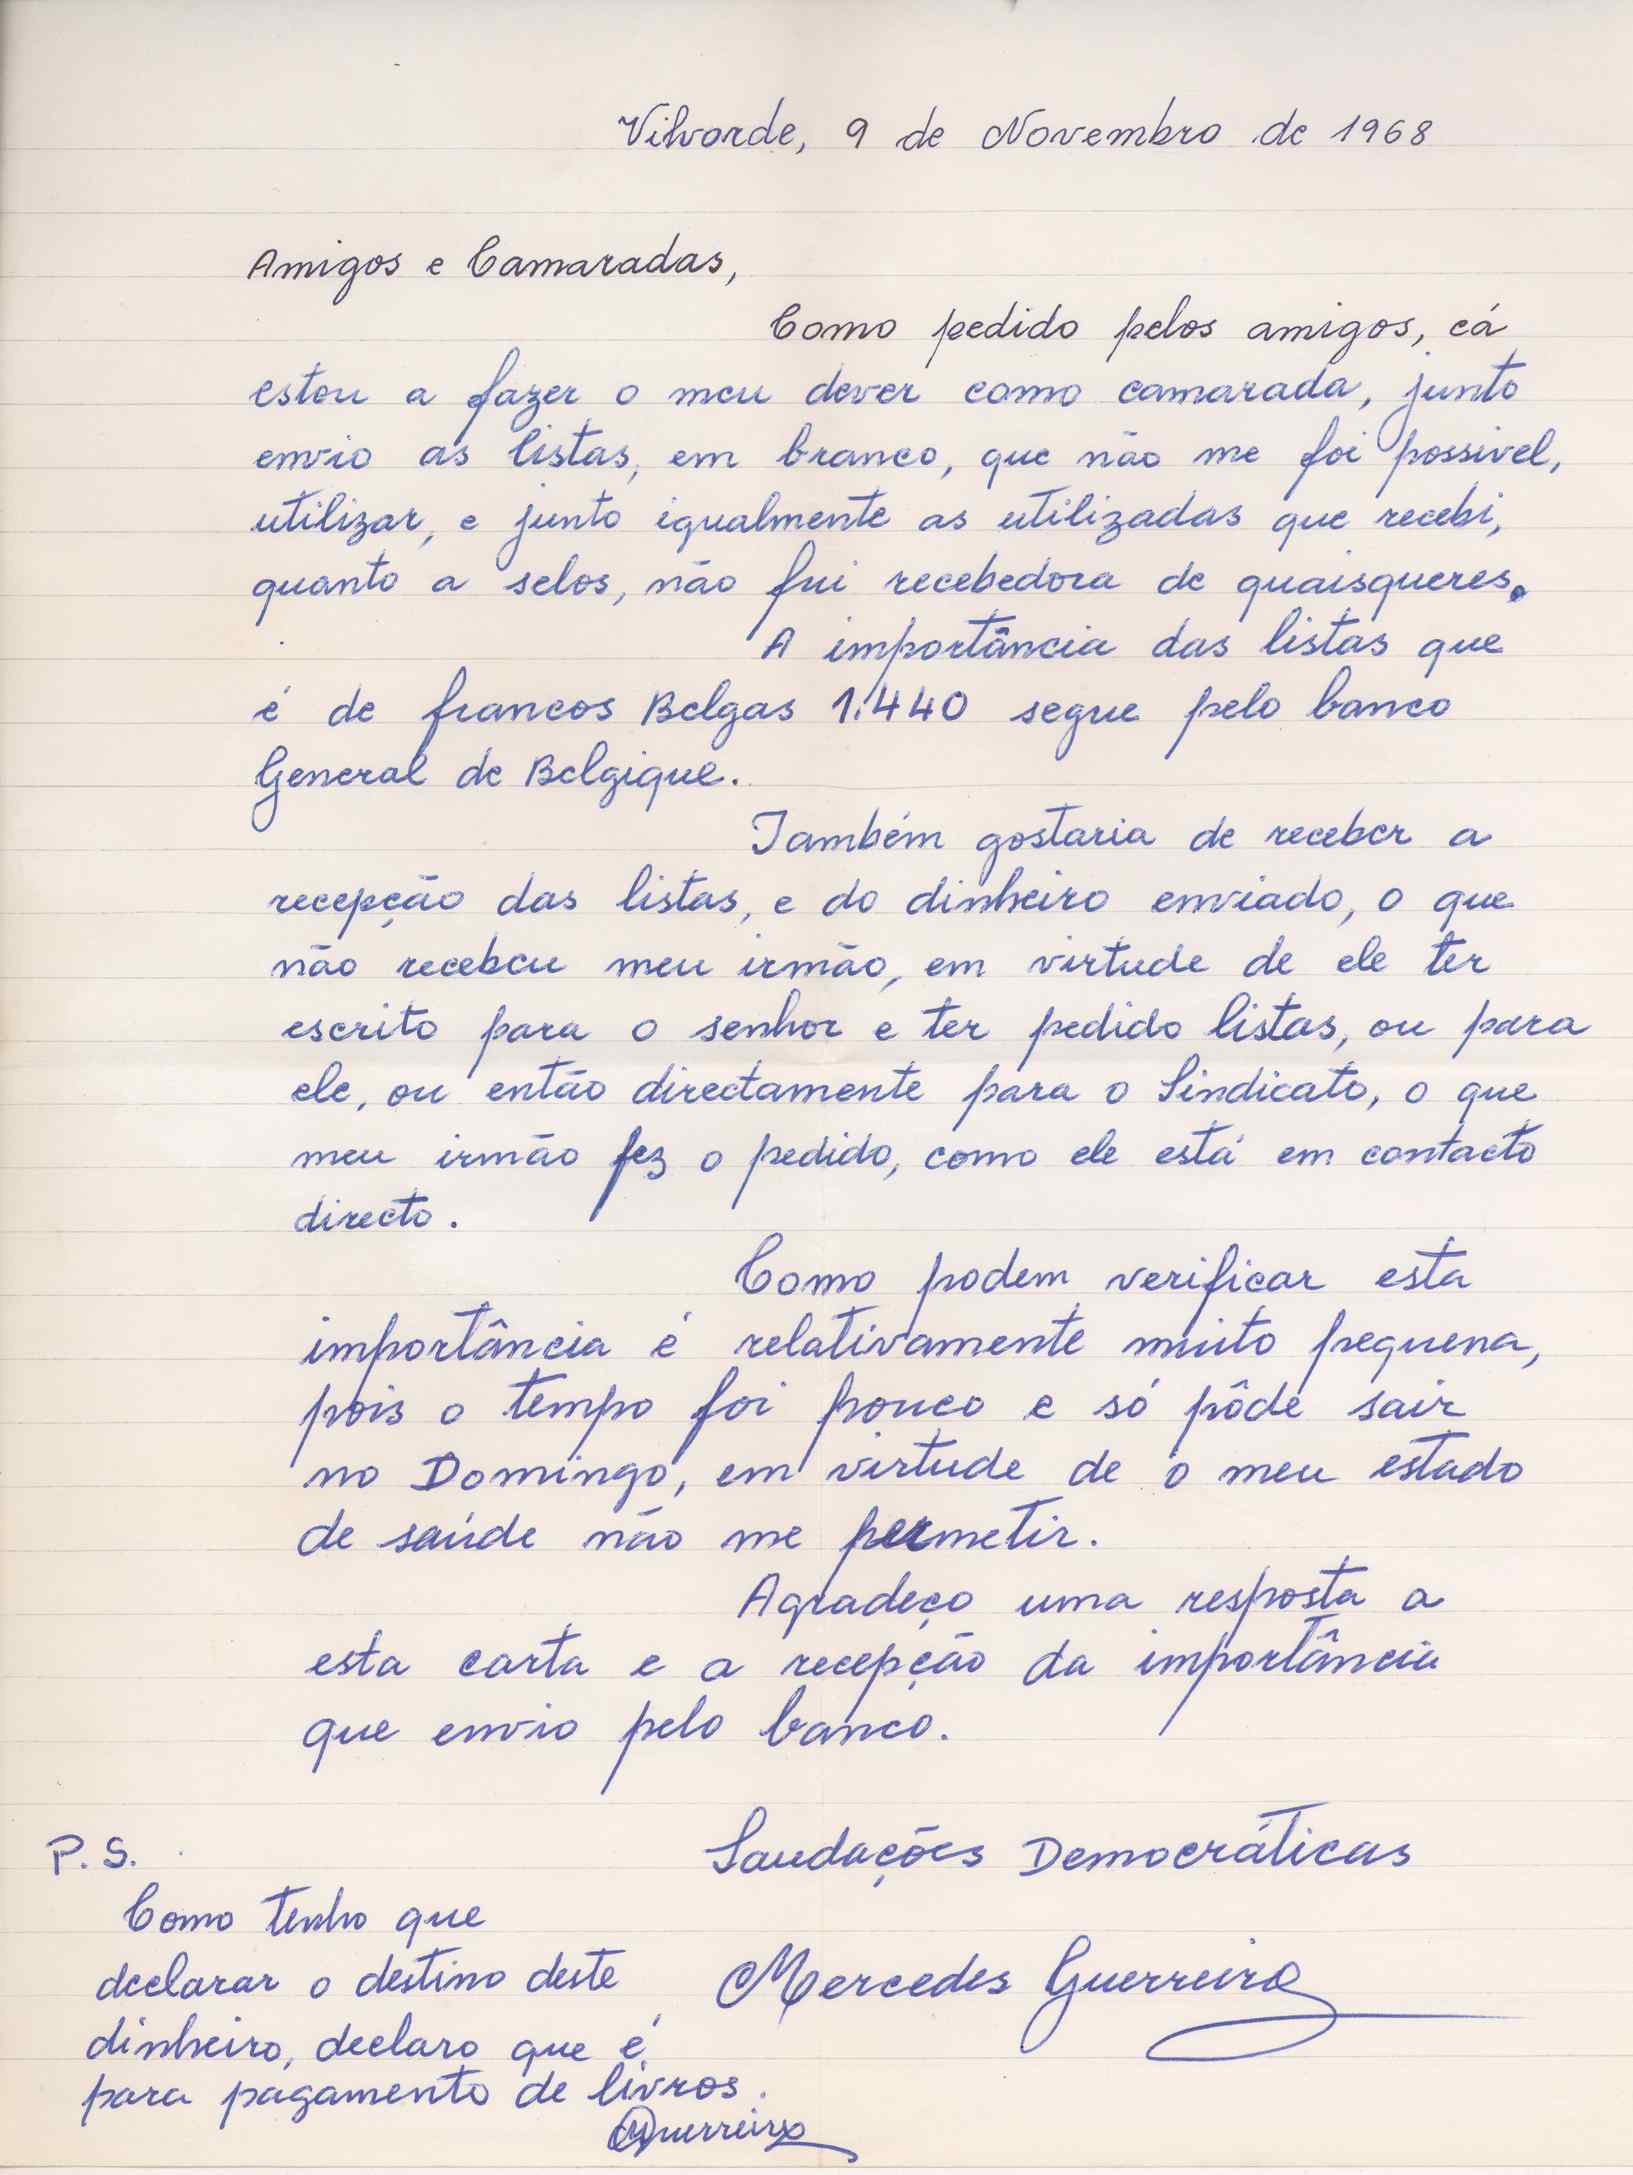 Vilvorde, 9 de Novembro de 1968
Amigos e Camaradas,
Como pedido pelos amigos, cá
estou a fazer o meu dever como camarada, junto
envio as listas, em branco, que não me foi possivel,
utilizar, e junto igualmente as utilizadas que recebi,
quanto a selos, não fui recebedora de quaisqueres.
A importância das listas que
é de francos Belgas 1.440 segue pelo banco
General de Belgique.
Também gostaria de receber a
recepção das listas, e do dinheiro enviado, o que
não recebeu meu irmão, em virtude de ele ter
escrito para o senhor e ter pedido listas, ou para
ele, ou então directamente para o Sindicato, o que
meu irmão fez o pedido, como ele está em contacto
directo.
Como podem verificar esta
importância é relativamente muito pequena,
pois o tempo foi pouco e só pôde sair
no Domingo, em virtude de o meu estado
de saúde não me permetir.
Agradeço uma resposta a
esta carta e a recepção da importância
que envio pelo banco.
Saudações Democráticas
Mercedes Guerreiro
P.S.
Como tenho que
declarar o destino deste
dinheiro, declaro que é
para pagamento de livros.
MGuerreiro